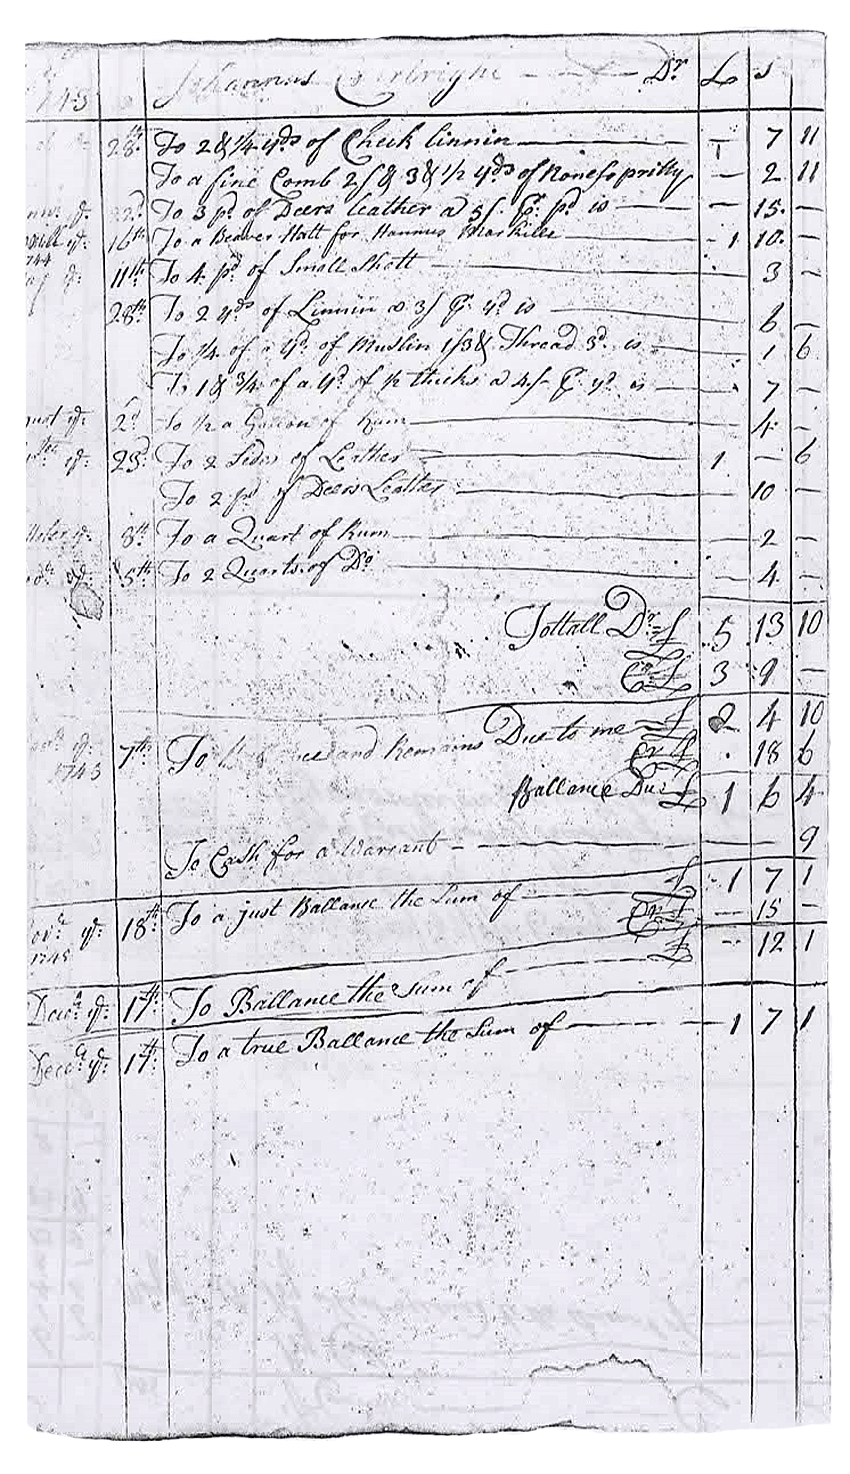 1743 Johannus Dr. £ s
28th To 2 & 1/4 yds of Check linnin — 7 11
To a fine Comb 2/ & 3 & 1/2 yds of — 2 11
22d To 3 pd. of Deers leather a 5/ pr. pd is — 15. —
16th To a Beaver Hatt for Hannus 1 10. —
1744
11th To 4 pd of Small Shott — 3 —
28th To 2 yds of Linnin a 3/ pr. yd is 6 —
To 1/4 of a yd. of Muslin 1/3 & Thread 3d. is — 1 6
To 1 & 3/4 of a yd. of thicks a 4/- pr. yd. is — 7 —
ye. 2d To 1/2 a Gallon of Rum 4 —
ye. 23d. To 2 Sides of Leather 1 — 6
To 2 pd of Deers Leather 10 —
8th To a Quart of Rum — 2 —
5th To 2 Quarts of Do. — 4 —
Tottall Dr. £ 5 13 10
Cr. £ 3 9 —
ye. 7th To and Remains Due to me £ 2 4 10
1743 Cr. £ 18 6
Ballance Due £ 1 6 4
To Cash for a Warrant — 9
£ 1 7 1
ye. 18th To a just Ballance the Sum of Cr. £ — 15 —
1745 £ — 12 1
Decr. ye. 17th. To Ballance the Sum of
Decr. ye. 17th. To a true Ballance the Sum of 1 7 1